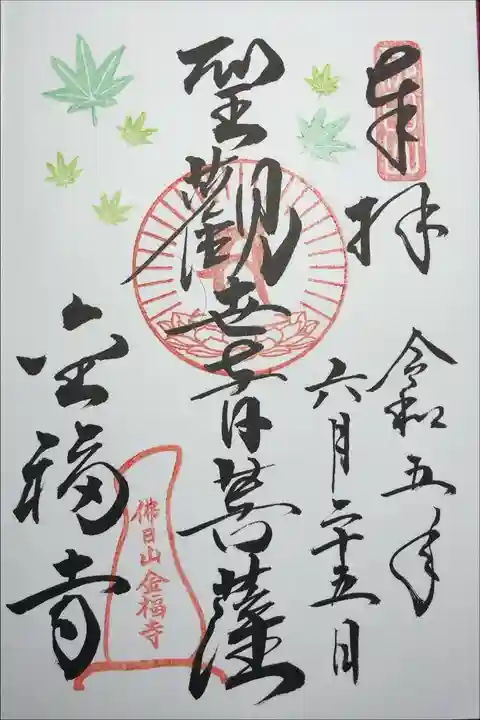 奉拝
令和五年
六月二十五日
聖觀世音菩薩
金福寺
佛日山金福寺